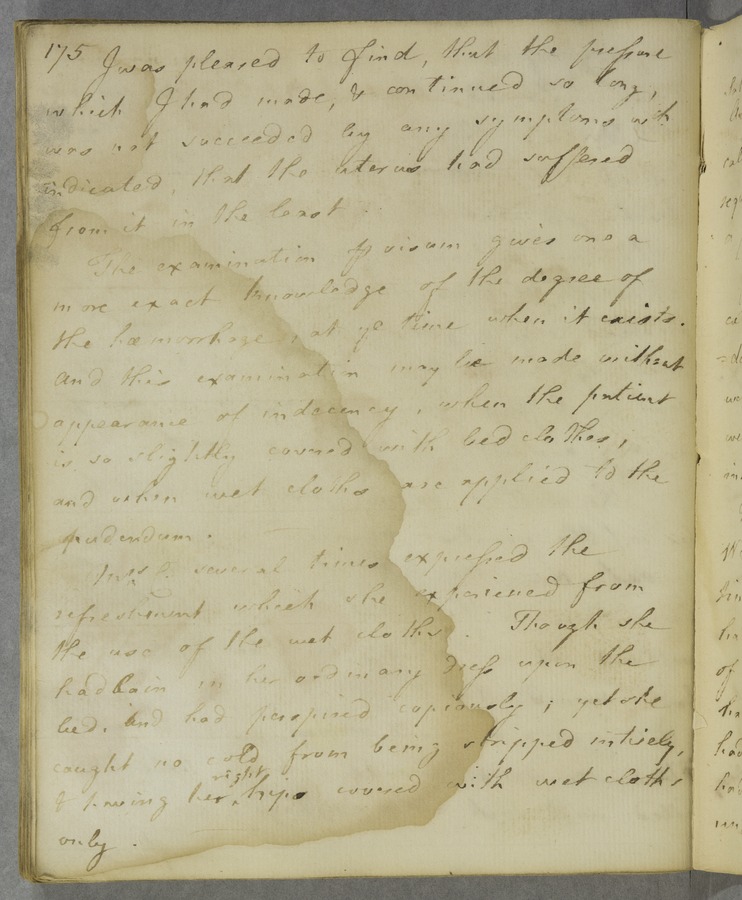 175 I was pleased to find, that the pressure
which I had made, & continued so long,
was not succeeded by any symptoms wch
indicated, that the uterus had suffered
from it in the least.
The examination p visum gives one a
more exact knowledge of the degree of
the hæmorrhage, at ye time when it exists.
and this examination may be made without
appearance of indecency, when the patient
is so slightly covered with bed clothes,
and when wet cloths are applied to the
pudendum.
Mrs P. several times expressed the
refreshment which she experienced from
the use of the wet cloths. Though she
had lain in her ordinary dress upon the
bed, and had perspired copiously; yet she
caught no cold from being stripped intirely,
& having her right hips covered with wet cloths
only.